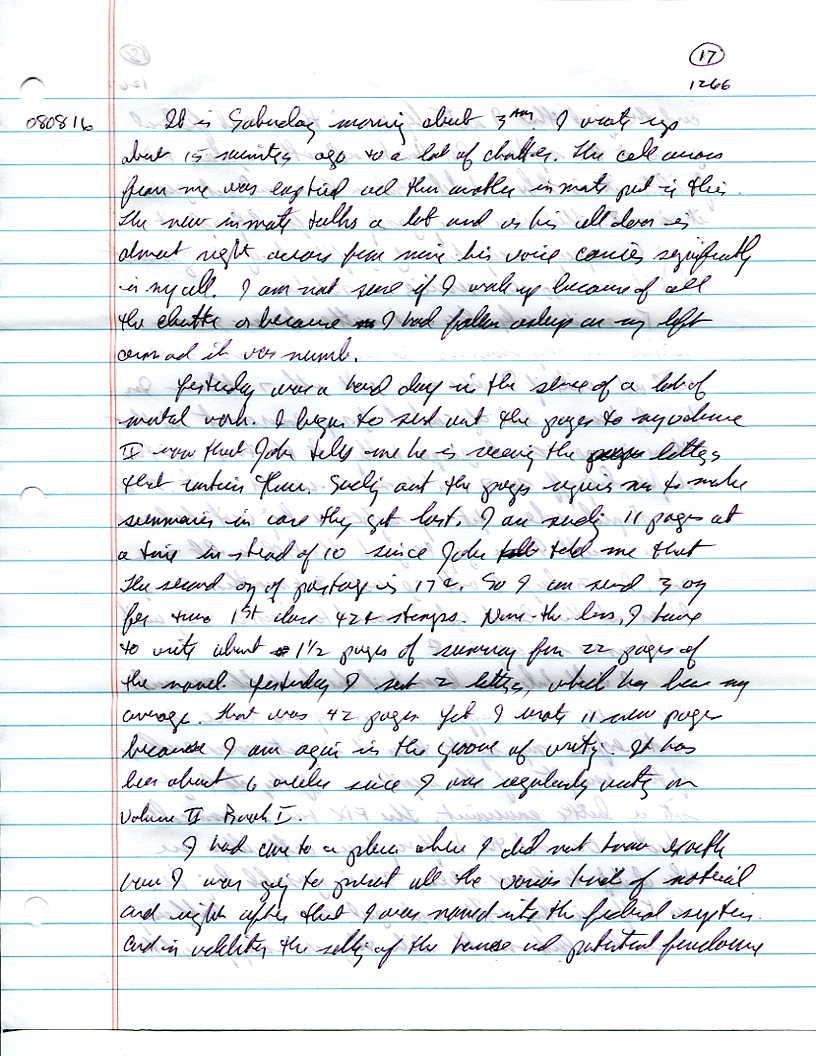 17
1266
080816 It is Saturday morning about 3 AM I woke up
about 15 minutes ago to a lot of chatter. The cell across
from me was emptied and then another inmate put in this.
The new inmate talks a lot and as his cell door is
almost right across from mine his voice carries significantly
in my cell. I am not sure if I woke up because of all
the chatter or because I had fallen asleep on my left
arm and it was numb.
Yesterday was a hard day in the sense of a lot of
mental work. I began to send out the pages to my volume
II now that John tells me he is receiving the letters
that contain them. Sending out the pages requires me to make
summaries in case they get lost. I am sending 11 pages at
a time instead of 10 since John told me that
the second oz of postage is 17¢. So I can send 3 oz
for two 1st class 42¢ stamps. None-the-less, I have
to write about 1 1/2 pages of summary for 22 pages of
the novel. Yesterday I sent 2 letters, which has been my
average. That was 42 pages yet I wrote 11 new pages
because I am again in the groove of writing. It has
been about 6 weeks since I was regularly writing on
Volume II Book I.
I had come to a place where I did not know exactly
how I was going to present all the various kinds of material
and right after that I was moved into the federal system.
And in addition the selling of the house and potential foreclosure